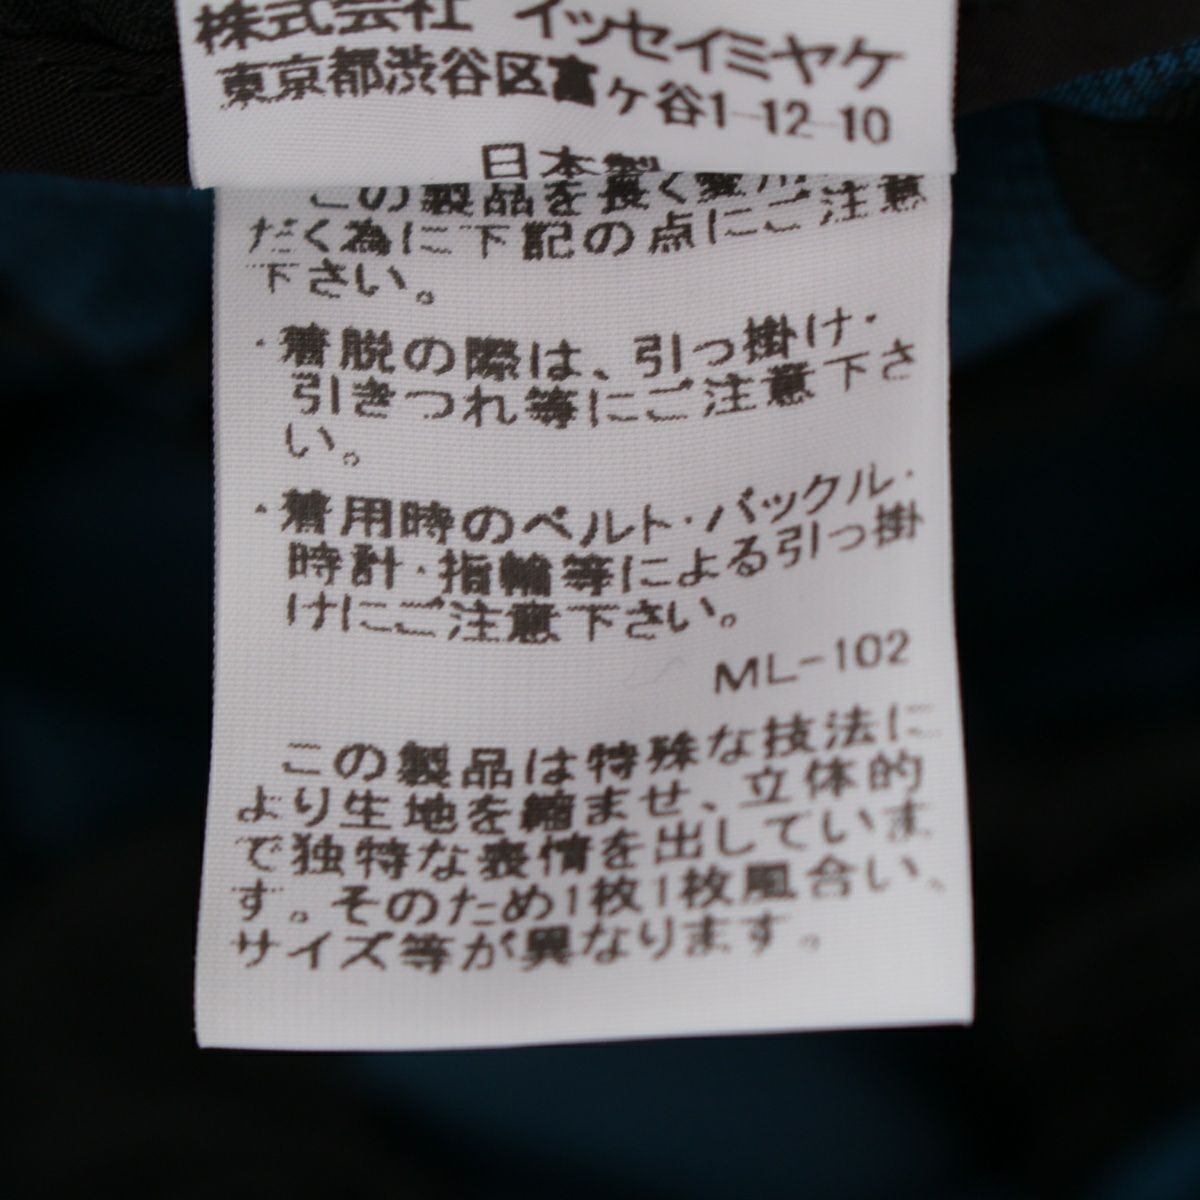 株式会社 イッセイミヤケ
東京都渋谷区富ヶ谷1-12-10
日本製
この製品を長く愛用
だく為に下記の点にご注意
下さい。
・着脱の際は、引っ掛け・
引きつれ等にご注意下さ
い。
・着用時のベルト・バックル・
時計・指輪等による引っ掛
けにご注意下さい。
ML-102
この製品は特殊な技法に
より生地を縮ませ、立体的
で独特な表情を出していま
す。そのため1枚1枚風合い、
サイズ等が異なります。